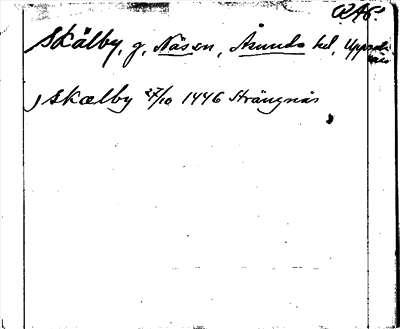 RAp.
Skälby, g, Näs sn, Åsunda hd, Uppsala
län
j Skælby 27/10 1446 Strängnäs